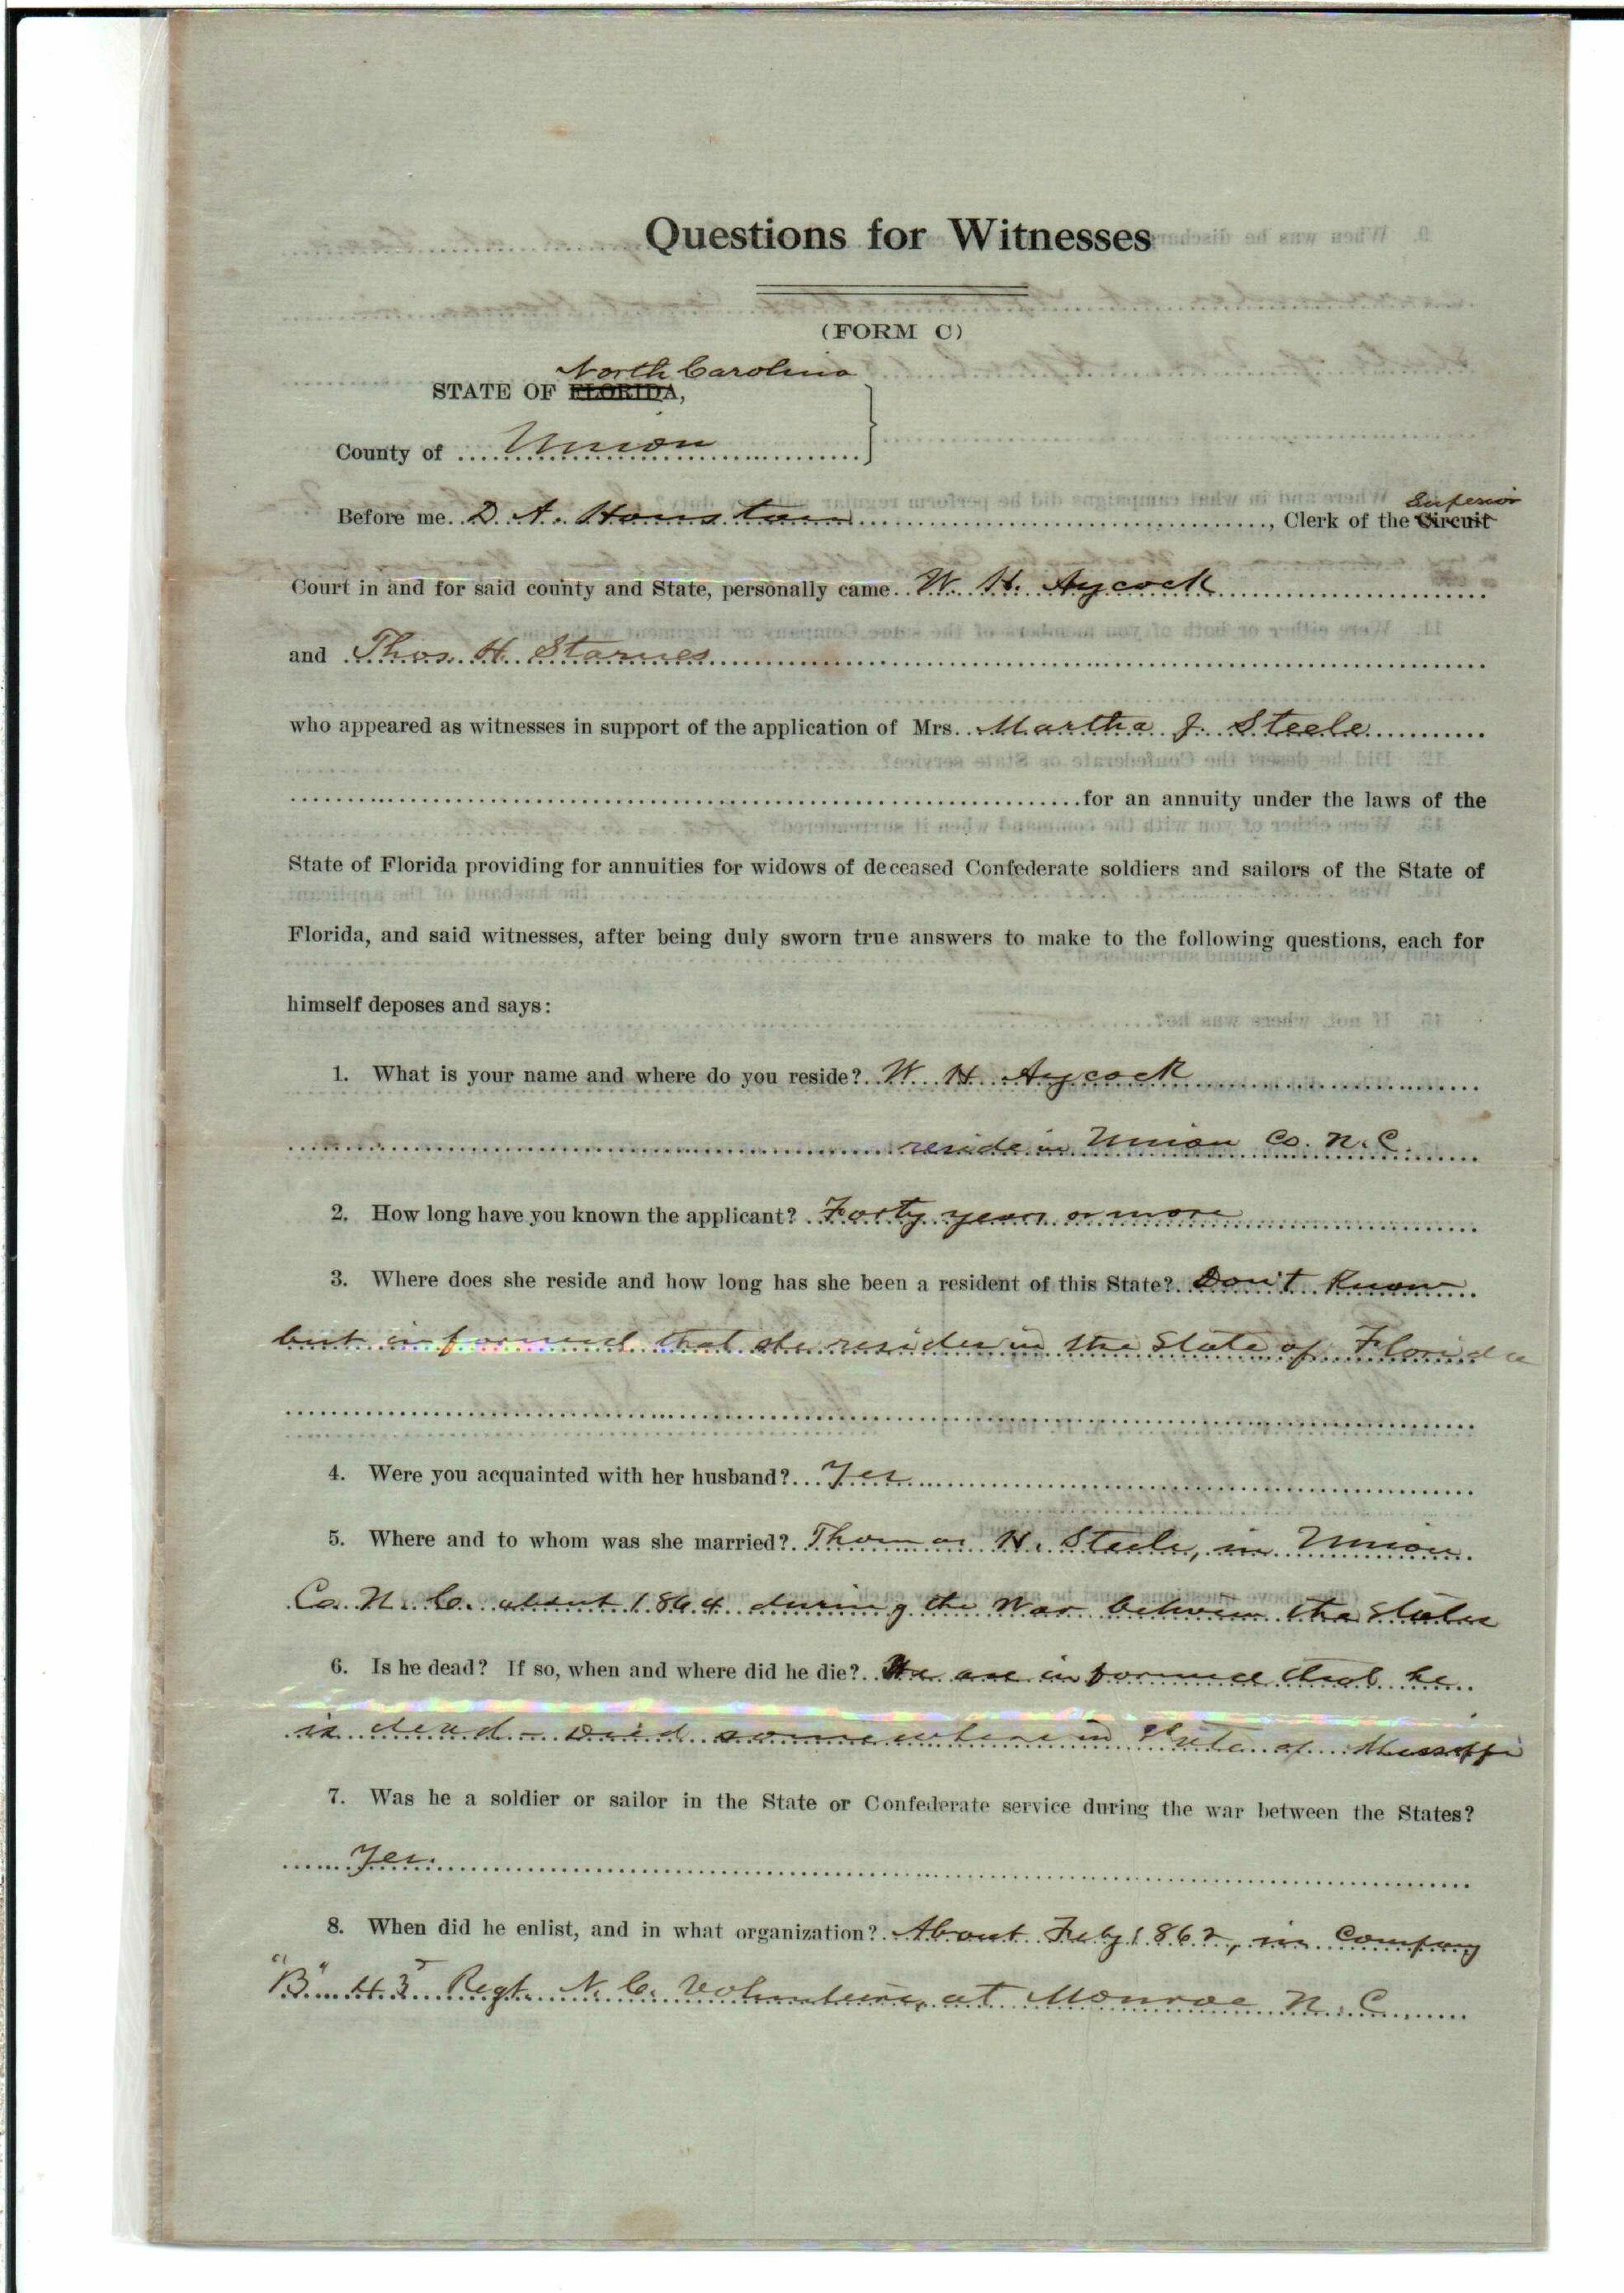 Questions for Witnesses
(FORM C)
North Carolina
STATE OF FLORIDA,
County of Union
Before me D. A. Houston, Clerk of the Circuit Superior
Court in and for said county and State, personally came W. H. Aycock
and Thos. H. Starnes
who appeared as witnesses in support of the application of Mrs. Martha J. Steele
for an annuity under the laws of the
State of Florida providing for annuities for widows of deceased Confederate soldiers and sailors of the State of
Florida, and said witnesses, after being duly sworn true answers to make to the following questions, each for
himself deposes and says:
1. What is your name and where do you reside? W. H. Aycock
reside in Union Co. N. C.
2. How long have you known the applicant? Forty years or more
3. Where does she reside and how long has she been a resident of this State? Don't Know
but informed that she resides in the State of Florida
4. Were you acquainted with her husband? Yes
5. Where and to whom was she married? Thomas H. Steele, in Union
Co. N. C. about 1864 during the War between the States
6. Is he dead? If so, when and where did he die? We are informed that he
is dead - Died somewhere in State of Mississippi
7. Was he a soldier or sailor in the State or Confederate service during the war between the States?
Yes.
8. When did he enlist, and in what organization? About Feby 1862, in Company
"B" 43 Regt. N. C. Volunteers, at Monroe N. C.